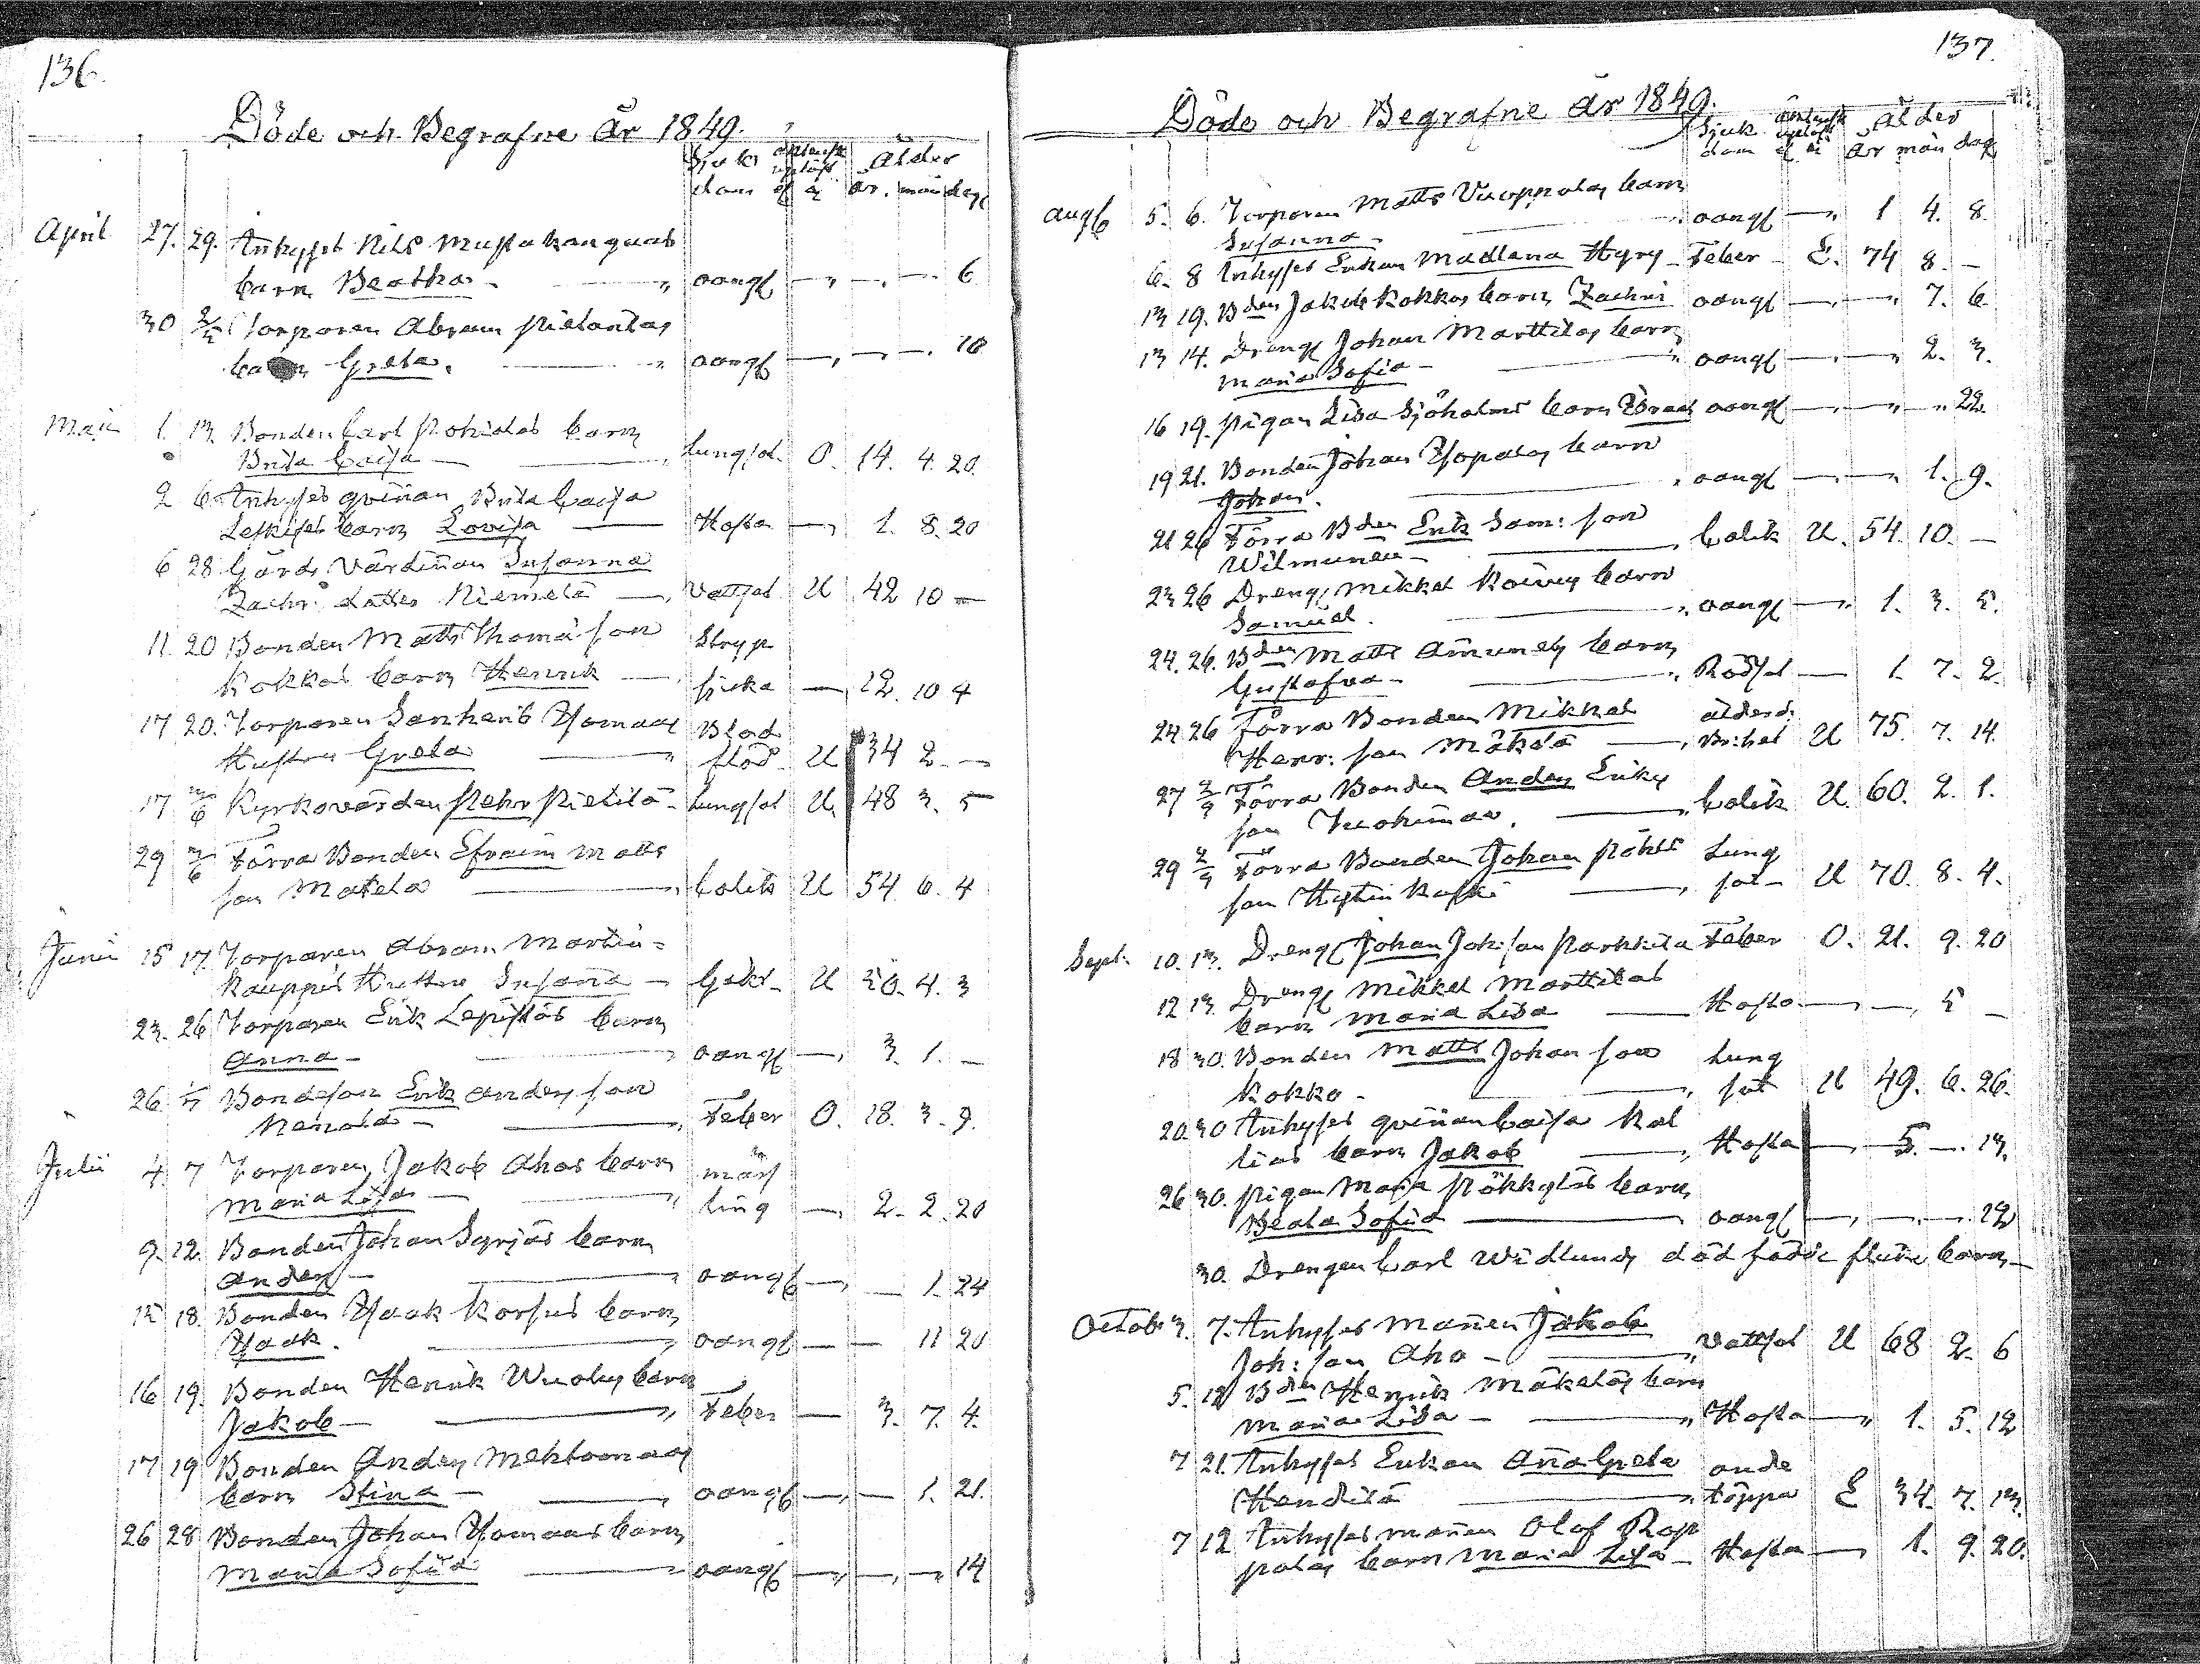 136.
Döde och Begrafne År 1849.
Sjuk
dom
ålder
år. mån dag
April 27. 29. Inhyses Nils Mustakangas
barn Beatha - oangf - - - 6
30 2/5 Torparen Abram Pietarilas
barn Greta. oangf - - - 10
Maji 1. 13. Bonden Carl Pohjolas barn
Brita Caisa - Lungsot. O. 14. 4. 20.
2 6 Inhyses qvinan Brita Caisa
barn Lovisa - Hosta - 1. 8. 20
6 28 Gård Värdinan Susanna
Zachr. dotter Niemelä - Vattsot U 42 10 -
11. 20 Bonden Matts Thomä son Stryp
Kokkos barn Henrik - sjuka - 12. 10 4
17 20. Torparen Yomaas Blod
Hustru Greta flöd U 34 2 -
17 3/6 Kyrkovärden Pehr Pietilä - Lungsot U. 48 3. 5
29 3/6 Förra Bonden Efraim Matts
son Matela Colik U 54 6. 4
Junii 15 17. Torparen Abram Martin=
kauppis Hustru Susana - U 30. 4. 3
23. 26 Torparen Erik Lepistös barn
Anna - oangf - 3. 1. -
26 1/7 Bondeson Erik Anders son
Feber O. 18. 3. 9.
Julii 4 7 Torparen Jakob Ahos barn mäs
Maria Lisa - ling - 2. 2. 20
9. 12. Bonden Johan Syrjäs barn
Anders - oangf - - 1. 24
15 18. Bonden Isaak Korpis barn
Isaak. oangf - - 11 20
16 19. Bonden Henrik barn
Jakob - Feber - 3. 7. 4.
17 19 Bonden Anders
barn Stina - oangf - - 1. 21.
26 28 Bonden Johan Yomaas barn
Maria Sofia oangf - - - 14
137.
Döde och Begrafne År 1849.
Sjuk
dom
Ålder
År mån dag
Aug 5. 6. Torparen Matts Vuoppolas barn
Susanna - oangf - 1 4. 8.
6. 8 Inhyses Enkan Madlena Hyry - Feber - E. 74 8. -
13 19. Bden Jakob Kokkos barn Zachri oangf - - 7. 6
13 14. Dreng Johan Marttilas barn
Maria Sofia - oangf - - 2. 3.
16 19. Pigan Lisa Sjöholms barn oangf - - - 22.
19 21. Bonden Johan barn
Johan. oangf - - 1. 9.
21 26 Förra Bden Erik Sam: son
Wilmunen - Colik U. 54. 10. -
23 26 Dreng Mikkel Koivus barn
Samuel. oangf - 1. 3. 5.
24. 26. Bden Matts barn
Gustafva - Rödsot - 1. 7. 2
24 26 Förra Bonden Mikkel ålderd:
Henr: son Mäkelä U 75. 7. 14.
27 2/9 Förra Bonden Anders Eriks
son Colik U 60. 2. 1.
29 2/9 Förra Bonden Johan Lung
son sot - U 70. 8. 4.
Sept. 10. 13. Dreng Johan Joh: son Parkkila Feber O. 21. 9. 20
12 13. Dreng Mikkel Marttilas
barn Maria Lisa Hosta - - 5 -
18 30. Bonden Matts Johan son Lung
Kokko - sot U 49. 6. 26.
20. 30 Inhyses qvinan Caisa Kal
lias barn Jakob Hosta - 5. - 13.
26 30. Pigan Maja barn
Beata Sofia oangf - - - 12
30. Drengen Carl Widlunds död född barn -
Octob: 3. 7. Inhyses Manen Jakob
Joh: son Aho - Vattsot U 68 2. 6
5. 12 Bden Henrik Mäkeläs barn
Maria Lisa - Hosta - 1. 5. 12
7 21. Inhyses Enkan Ana Greta ande
Handilä täppa E 34. 7. 13.
7 12 Inhyses manen Olof Rop
polas barn Maria Lisa - Hosta - 1. 9. 20.